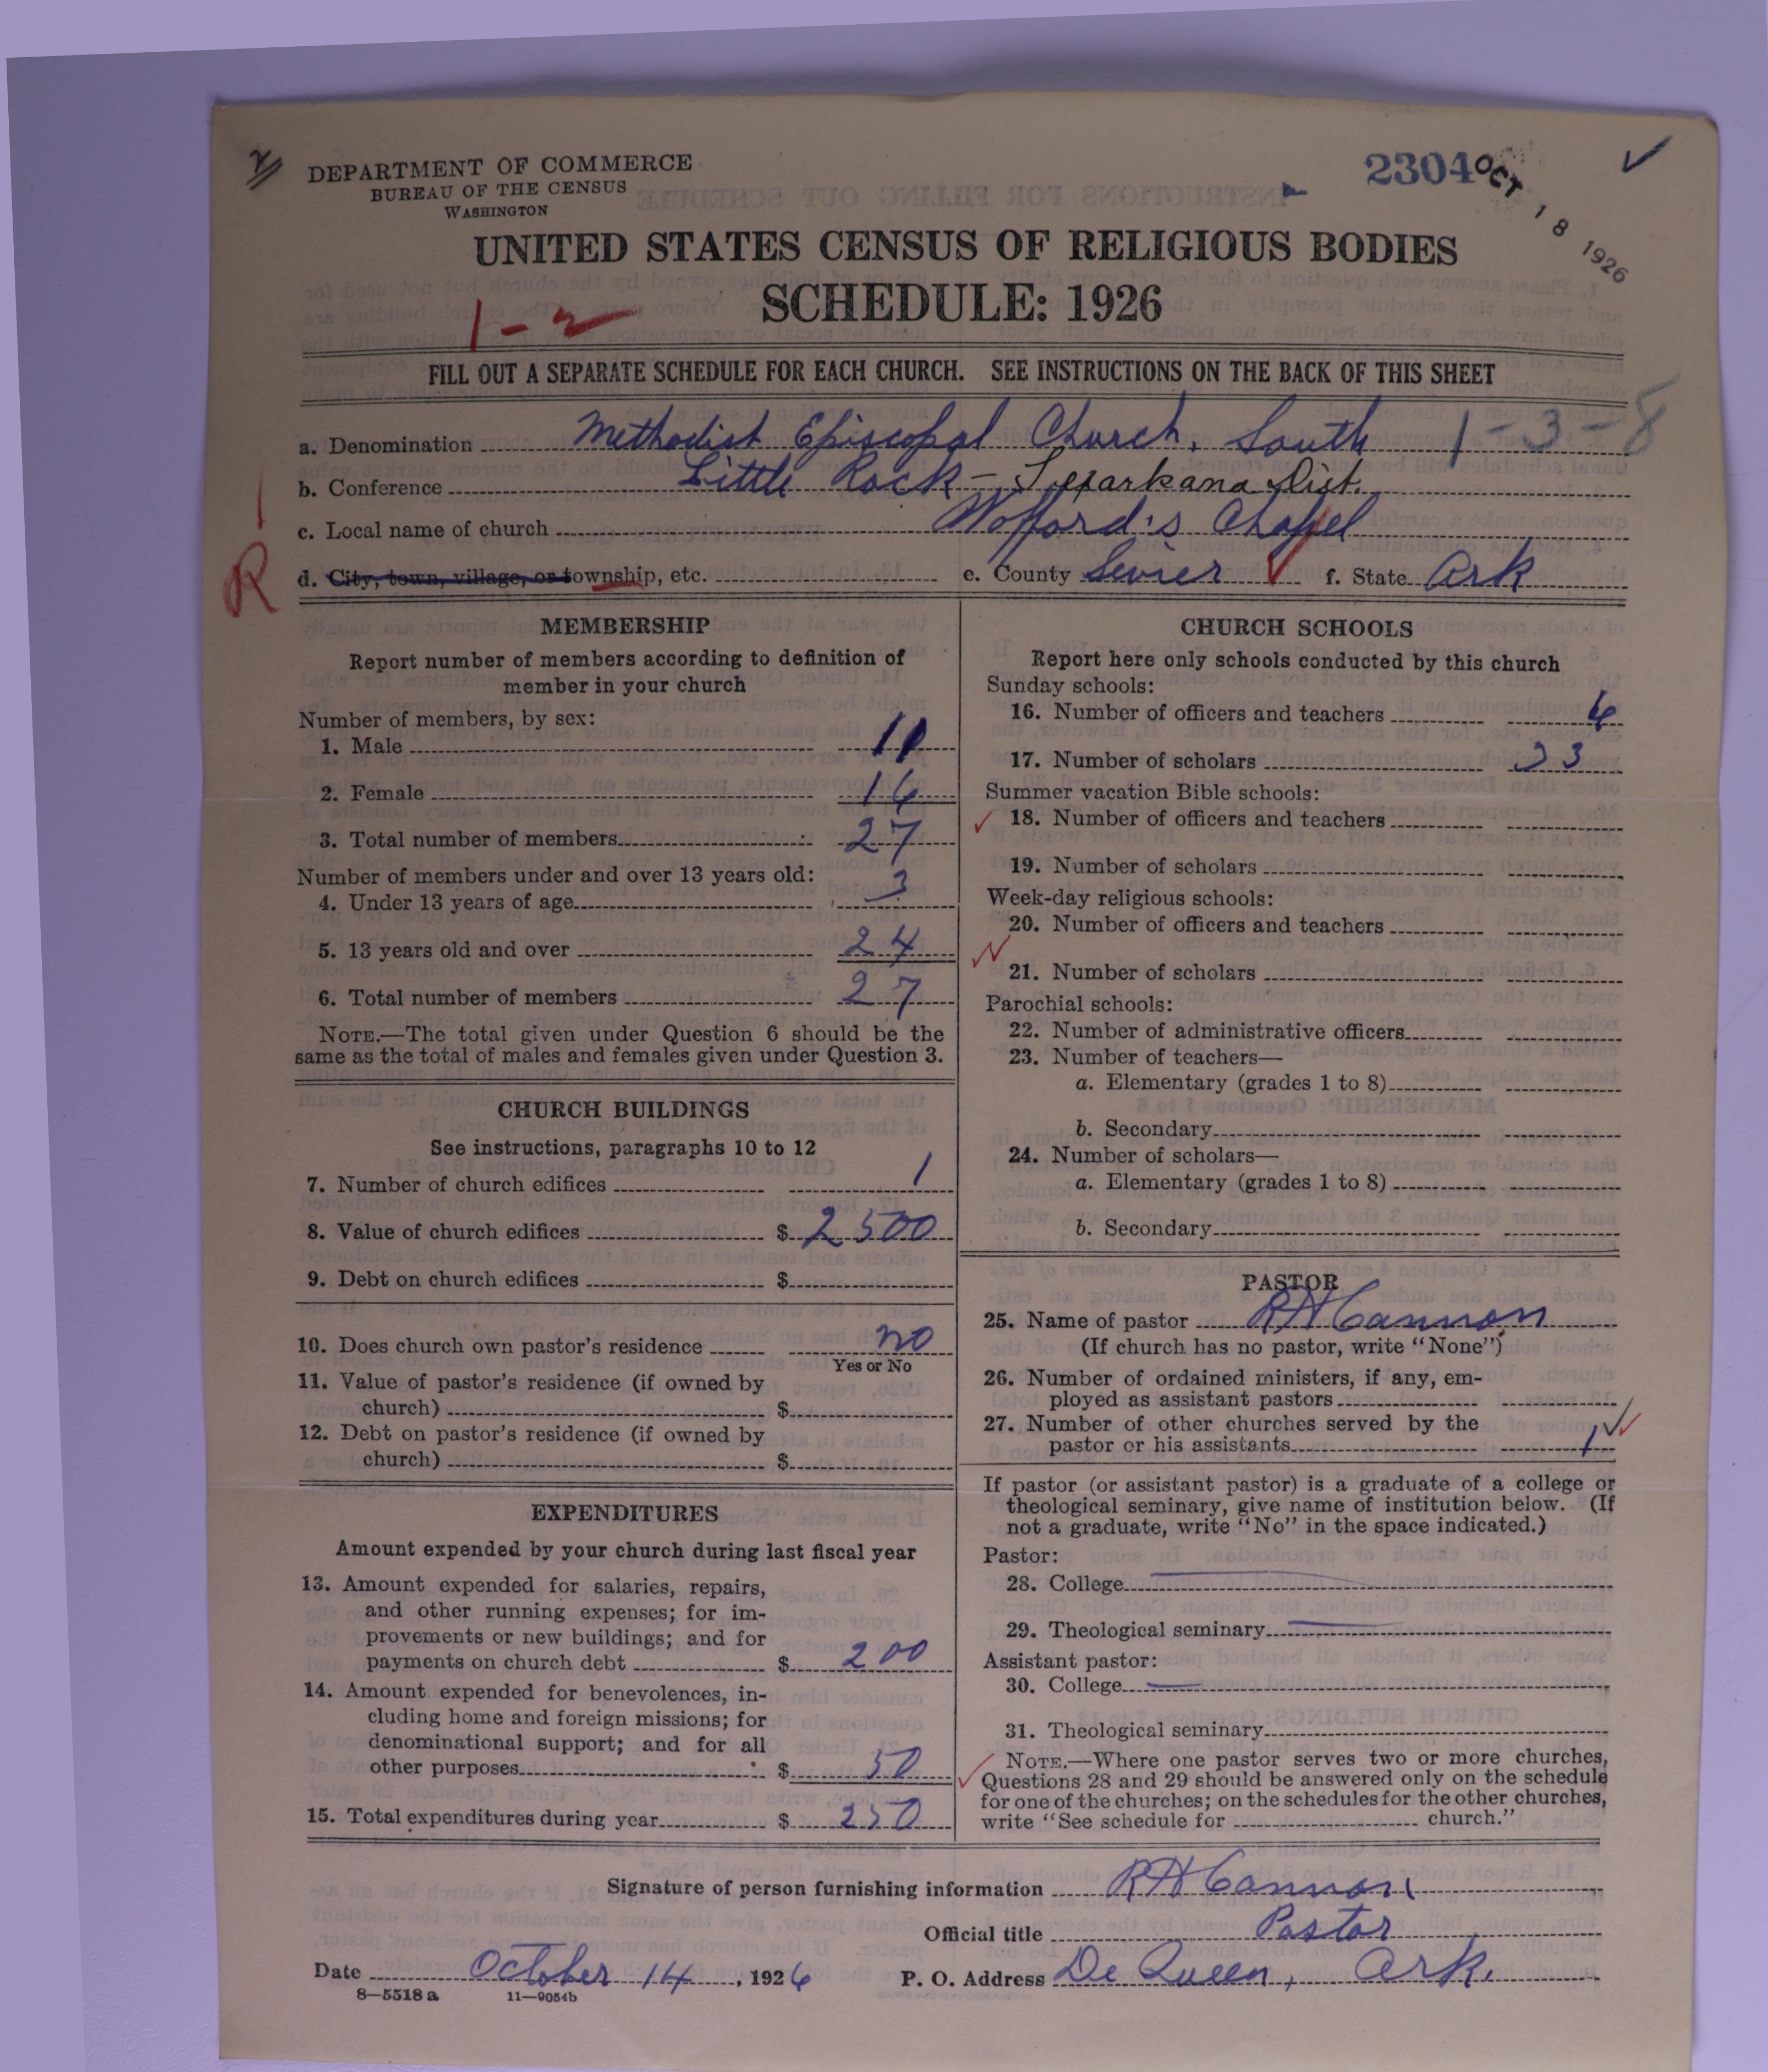 DEPARTMENT OF COMMERCE
BUREAU OF THE CENSUS
WASHINGTON
2304
OCT 18 1926
UNITED STATES CENSUS OF RELIGIOUS BODIES
SCHEDULE: 1926
1-2
FILL OUT A SEPARATE SCHEDULE FOR EACH CHURCH. SEE INSTRUCTIONS ON THE BACK OF THIS SHEET
a. Denomination Methodist Episcopal Church, South 1-3-8
b. Conference Little Rock - Texarkana Dist.
c. Local name of church Wofford's Chapel
R
d. City, town, village, or township, etc. e. County Sevier f. State Ark
MEMBERSHIP
Report number of members according to definition of
member in your church
Number of members, by sex:
1. Male 11
2. Female 16
3. Total number of members 27
Number of members under and over 13 years old:
4. Under 13 years of age 3
5. 13 years old and over 24
6. Total number of members 27
NOTE.—The total given under Question 6 should be the
same as the total of males and females given under Question 3.
CHURCH BUILDINGS
See instructions, paragraphs 10 to 12
7. Number of church edifices 1
8. Value of church edifices $ 2500
9. Debt on church edifices $
10. Does church own pastor's residence no
Yes or No
11. Value of pastor's residence (if owned by
church) $
12. Debt on pastor's residence (if owned by
church) $
EXPENDITURES
Amount expended by your church during last fiscal year
13. Amount expended for salaries, repairs,
and other running expenses; for im-
provements or new buildings; and for
payments on church debt $ 200
14. Amount expended for benevolences, in-
cluding home and foreign missions; for
denominational support; and for all
other purposes $ 50
15. Total expenditures during year $ 250
CHURCH SCHOOLS
Report here only schools conducted by this church
Sunday schools:
16. Number of officers and teachers 6
17. Number of scholars 33
Summer vacation Bible schools:
18. Number of officers and teachers
19. Number of scholars
Week-day religious schools:
20. Number of officers and teachers
21. Number of scholars
Parochial schools:
22. Number of administrative officers
23. Number of teachers—
a. Elementary (grades 1 to 8)
b. Secondary
24. Number of scholars—
a. Elementary (grades 1 to 8)
b. Secondary
PASTOR
25. Name of pastor R H Cannon
(If church has no pastor, write "None")
26. Number of ordained ministers, if any, em-
ployed as assistant pastors
27. Number of other churches served by the
pastor or his assistants 1
If pastor (or assistant pastor) is a graduate of a college or
theological seminary, give name of institution below. (If
not a graduate, write "No" in the space indicated.)
Pastor:
28. College
29. Theological seminary
Assistant pastor:
30. College
31. Theological seminary
NOTE.—Where one pastor serves two or more churches,
Questions 28 and 29 should be answered only on the schedule
for one of the churches; on the schedules for the other churches,
write "See schedule for church."
Signature of person furnishing information R H Cannon
Official title Pastor
Date October 14, 1926 P. O. Address De Queen, Ark.
8—5518 a 11—9054b